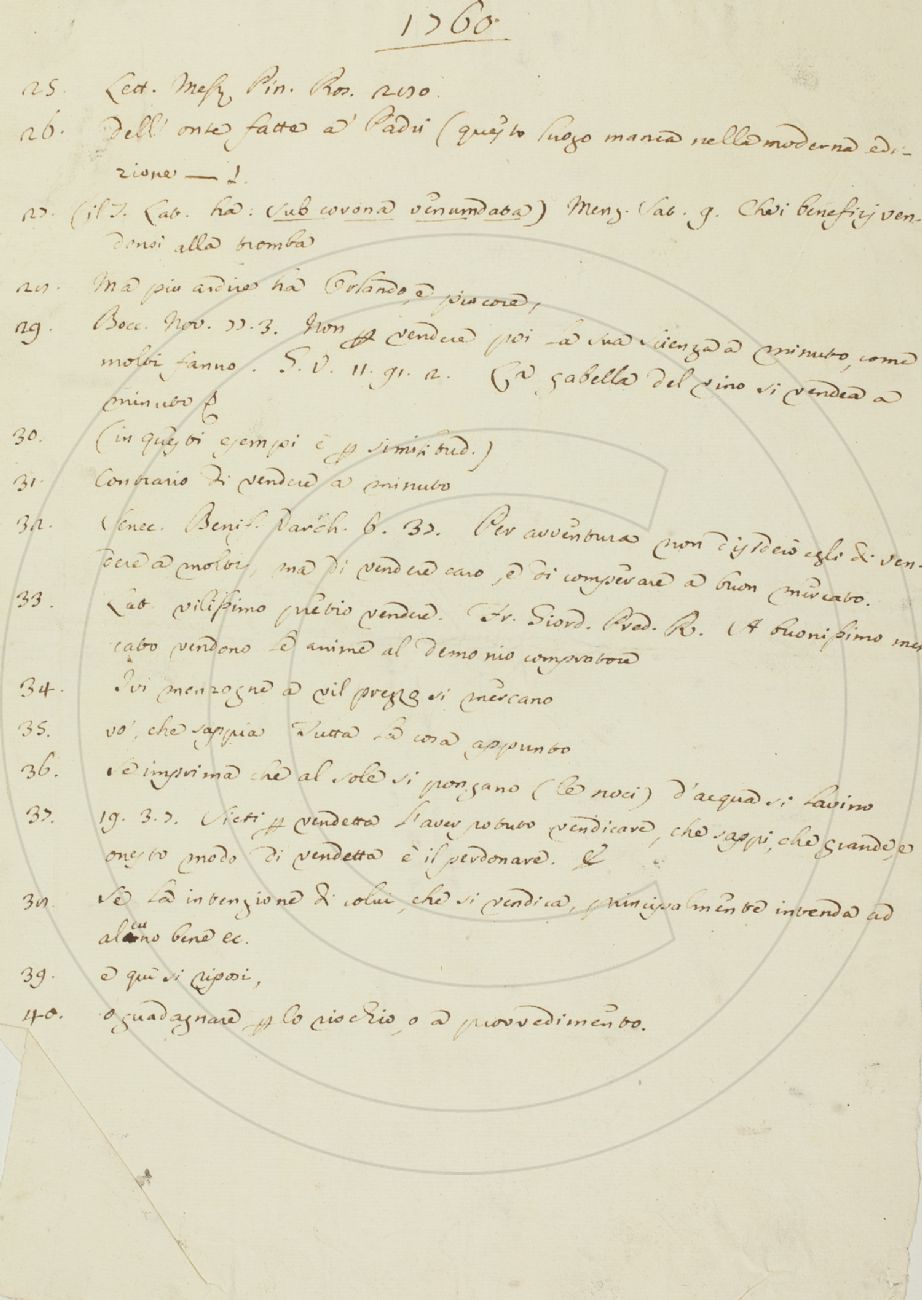 1760
25. Lett. Mess. Pin. Ros. 280
26. Dell' onte fatte a' Padri (questo luogo manca nella moderna edi-
zione — 1.
27. (il T. Lat. ha: sub corona venumdata) Menz. Sat. 9. Che i benefizj ven-
donsi alla tromba
28. Ma più ardire ha Orlando, e più core,
29. Bocc. Nov. 77. 3. Non p vendere poi la sua scienza a minuto, come
molti fanno. G. V. 11. 91. 2. La gabella del vino si vendea a
minuto
30. (in questi esempi è p similitud.)
31. Contrario di vendere a minuto
32. Senec. Benif. Varch. 6. 37. Per avventura non desiderò egli di ven-
dere a molti, ma di vendere caro, e di comperare a buon mercato.
33. Lat. vilissimo pretio vendere. Fr. Giord. Pred. R. A buonissimo mer
cato vendono le anime al demonio compratore
34. Ivi menzogne a vil prezzo si mercano
35. vo', che sappia Tutta la cosa appunto
36. se imprima che al sole si pongano (le noci) d'acqua si lavino
37. 19. 3. 7. Sieti p vendetta l'aver potuto vendicare, che sappi, che grande, e
onesto modo di vendetta è il perdonare.
38. se la intenzione di colui, che si vendica, principalmente intenda ad
alcuno bene ec.
39. e quì si riposi,
40. o guadagnare p lo rischio, o a provvedimento.